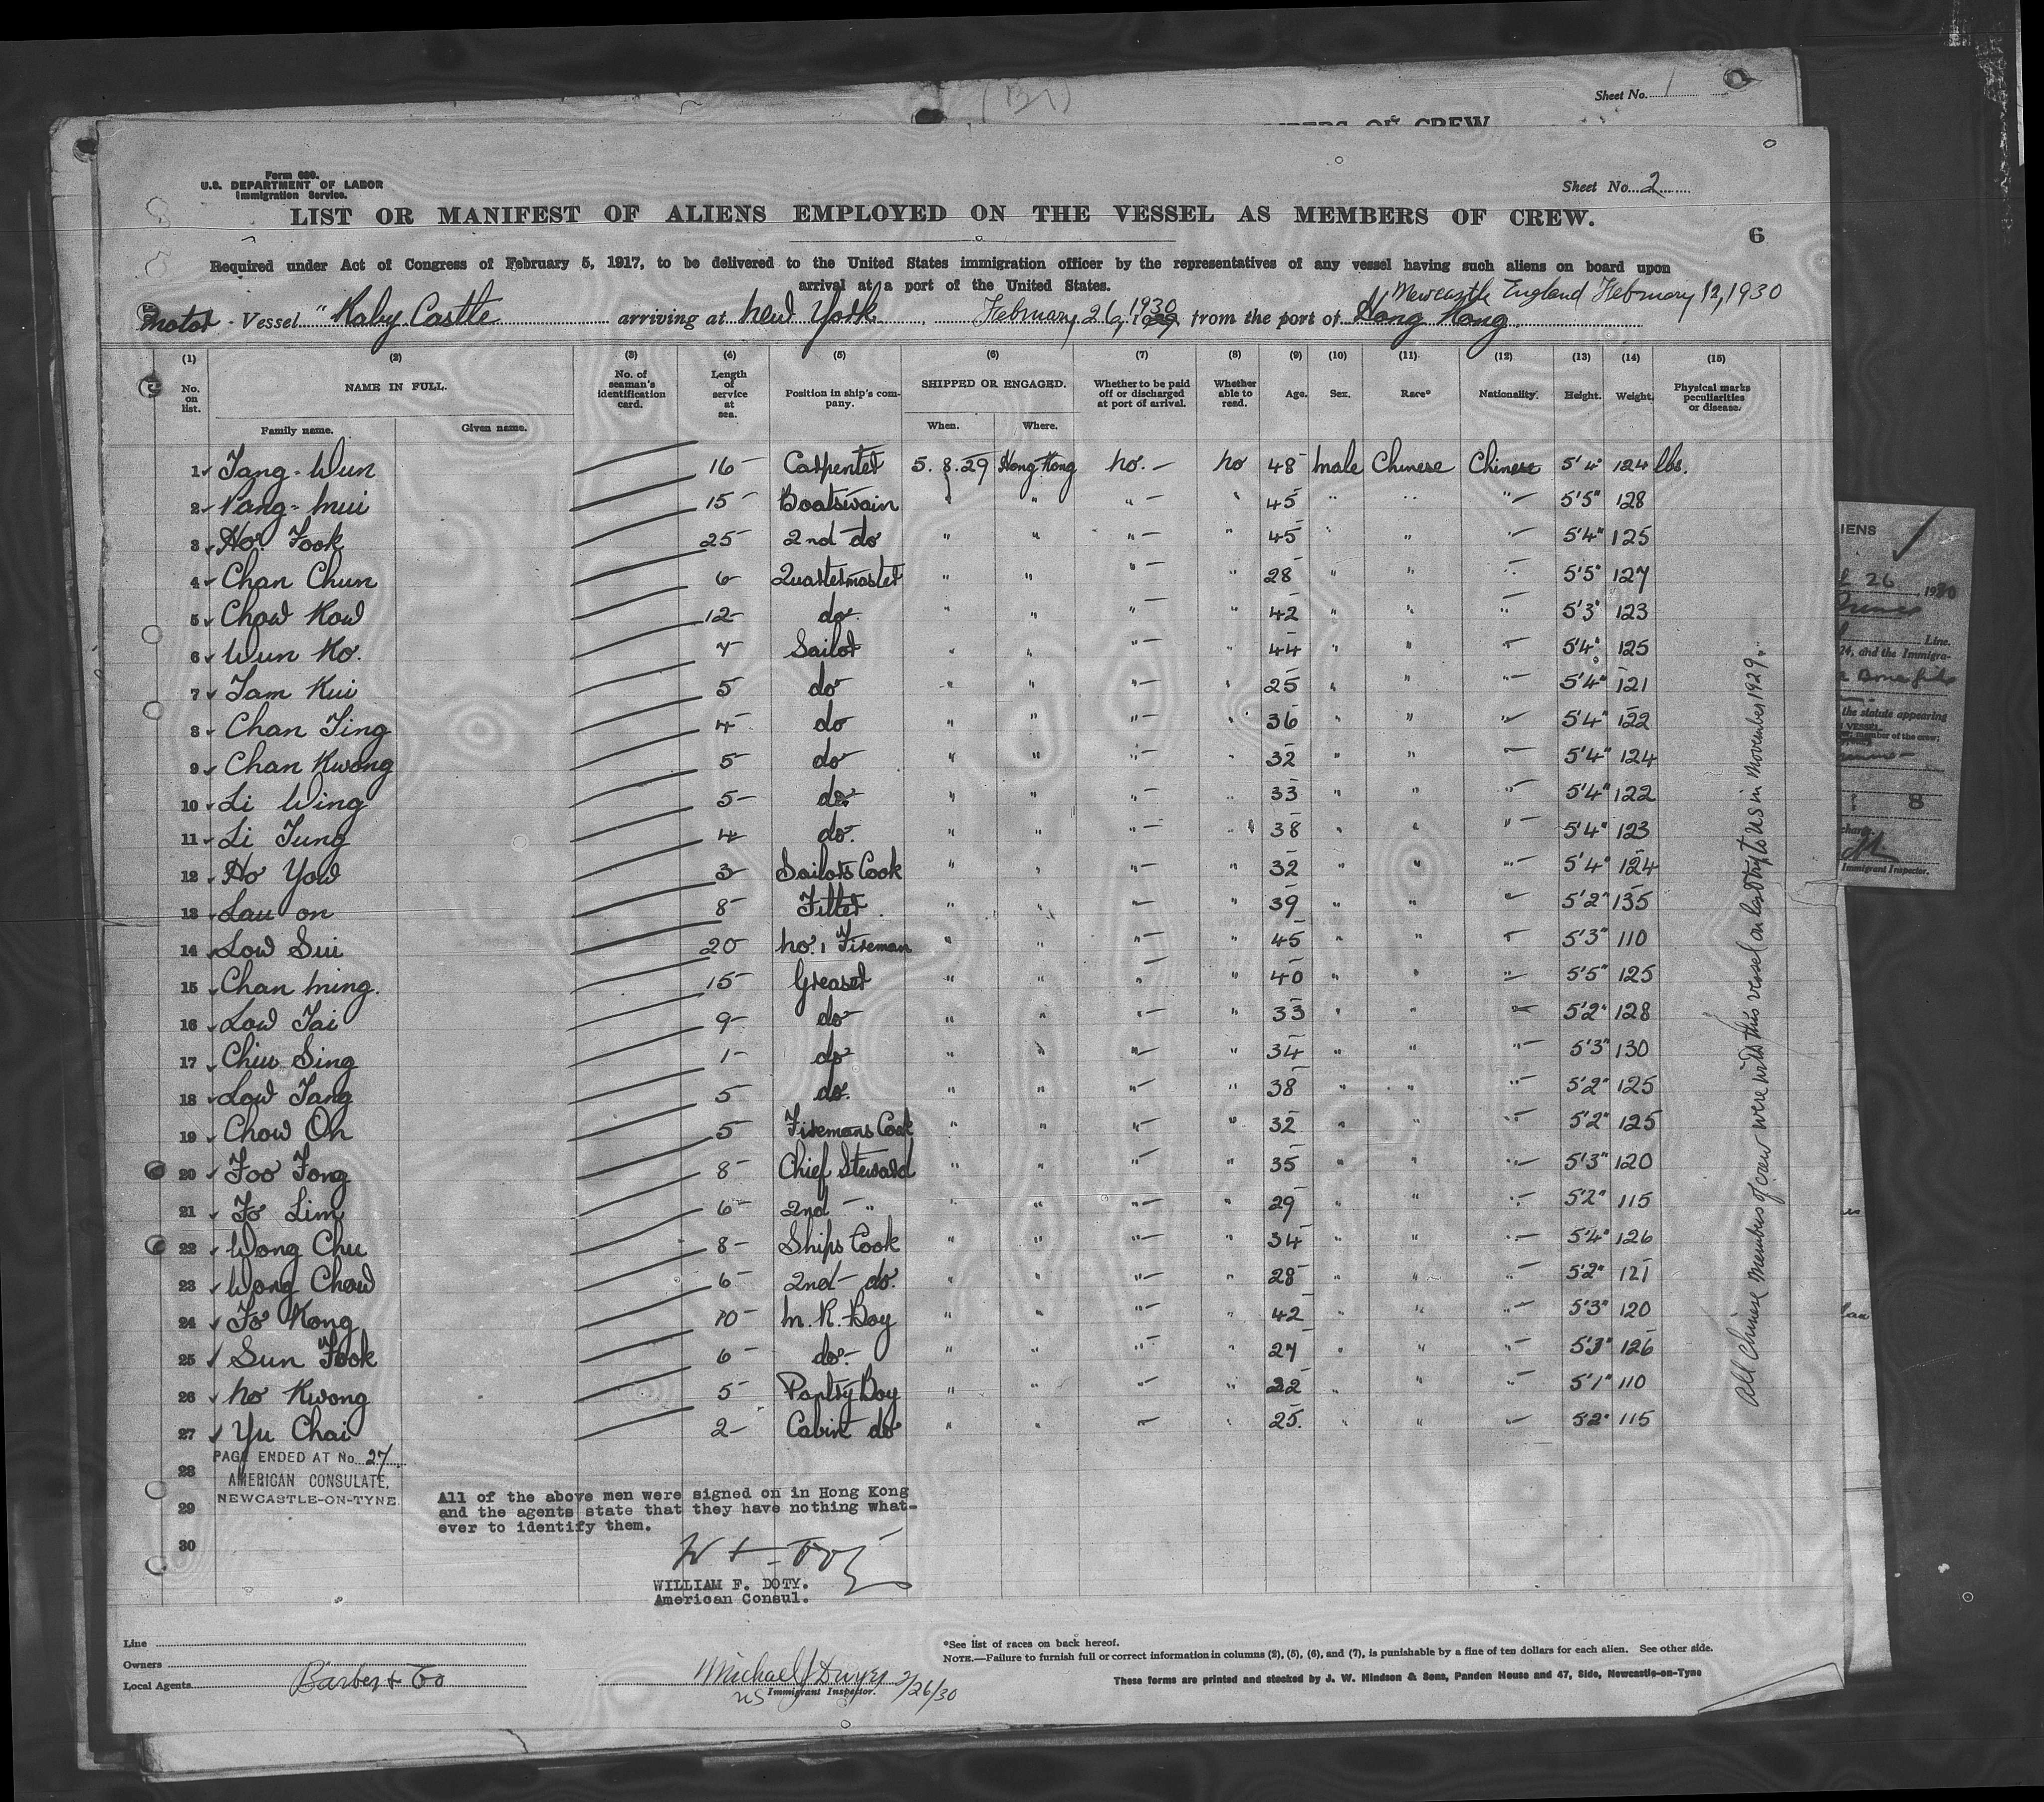 Sheet No. 1
MEMBERS OF CREW
Form 689.
U.S. DEPARTMENT OF LABOR
Immigration Service.
Sheet No. 2
LIST OR MANIFEST OF ALIENS EMPLOYED ON THE VESSEL AS MEMBERS OF CREW.
6
Required under Act of Congress of February 5, 1917, to be delivered to the United States immigration officer by the representatives of any vessel having such aliens on board upon
arrival at a port of the United States.
Newcastle England February 12, 1930
Motor - Vessel "Raby Castle arriving at New York, February 26, 1930 from the port of Hong Kong.
(1) (2) (3) (4) (5) (6) (7) (8) (9) (10) (11) (12) (13) (14) (15)
No. on list. NAME IN FULL. No. of seaman's identification card. Length of service at sea. Position in ship's company. SHIPPED OR ENGAGED. Whether to be paid off or discharged at port of arrival. Whether able to read. Age. Sex. Race* Nationality. Height. Weight. Physical marks peculiarities or disease.
Family name. Given name. When. Where.
1 Tang - Wun 16 Carpenter 5.8.29 Hong Kong No. - No 48 Male Chinese Chinese 5'4" 124 lbs.
2 Pang - Mui 15 Boatswain " " " " 45 " " " 5'5" 128
3 Ho Fook 25 2nd do " " " " 45 " " " 5'4" 125
4 Chan Chun 6 Quartermaster " " " " 28 " " " 5'5" 127
5 Chow Kow 12 do " " " " 42 " " " 5'3" 123
6 Wun Ko. 7 Sailor " " " " 44 " " " 5'4" 125
7 Tam Kui 5 do " " " " 25 " " " 5'4" 121
8 Chan Ting 4 do " " " " 36 " " " 5'4" 122
9 Chan Kwong 5 do " " " " 32 " " " 5'4" 124
10 Li Wing 5 do " " " " 33 " " " 5'4" 122
11 Li Tung 4 do " " " " 38 " " " 5'4" 123
12 Ho Yow 3 Sailors Cook " " " " 32 " " " 5'4" 124
13 Lau on 8 Fitter " " " " 39 " " " 5'2" 135
14 Low Sui 20 No. 1 Fireman " " " " 45 " " " 5'3" 110
15 Chan Ming. 15 Greaser " " " " 40 " " " 5'5" 125
16 Low Tai 9 do " " " " 33 " " " 5'2" 128
17 Chiu Sing 1 do " " " " 34 " " " 5'3" 130
18 Low Tang 5 do. " " " " 38 " " " 5'2" 125
19 Chow On 5 Firemans Cook " " " " 32 " " " 5'2" 125
20 Foo Fong 8 Chief Steward " " " " 35 " " " 5'3" 120
21 Fo Lim 6 2nd - " " " " " 29 " " " 5'2" 115
22 Wong Chu 8 Ships Cook " " " " 34 " " " 5'4" 126
23 Wong Chow 6 2nd - do. " " " " 28 " " " 5'2" 121
24 Fo Kong 10 M. R. Boy " " " " 42 " " " 5'3" 120
25 Sun Fook 6 do. " " " " 27 " " " 5'3" 126
26 Ho Kwong 5 Pantry Boy " " " " 22 " " " 5'1" 110
27 Yu Chai 2 Cabin do " " " " 25. " " " 5'2" 115
28
29
30
PAGE ENDED AT No. 27
AMERICAN CONSULATE,
NEWCASTLE-ON-TYNE
All of the above men were signed on in Hong Kong
and the agents state that they have nothing what-
ever to identify them.
WILLIAM F. DOTY.
American Consul.
All Chinese members of crew were with this vessel on last trip to US in November 1929.
Line
Owners
Local Agents Barber & Co
Michael J Dwyer 2/26/30
US Immigrant Inspector.
*See list of races on back hereof.
NOTE.—Failure to furnish full or correct information in columns (2), (5), (6), and (7), is punishable by a fine of ten dollars for each alien. See other side.
These forms are printed and stocked by J. W. Hindson & Sons, Pandon House and 47, Side, Newcastle-on-Tyne
LIENS
26 1930
Line.
24, and the Immigra-
the statute appearing
VESSEL
member of the crew;
8
Immigrant Inspector.